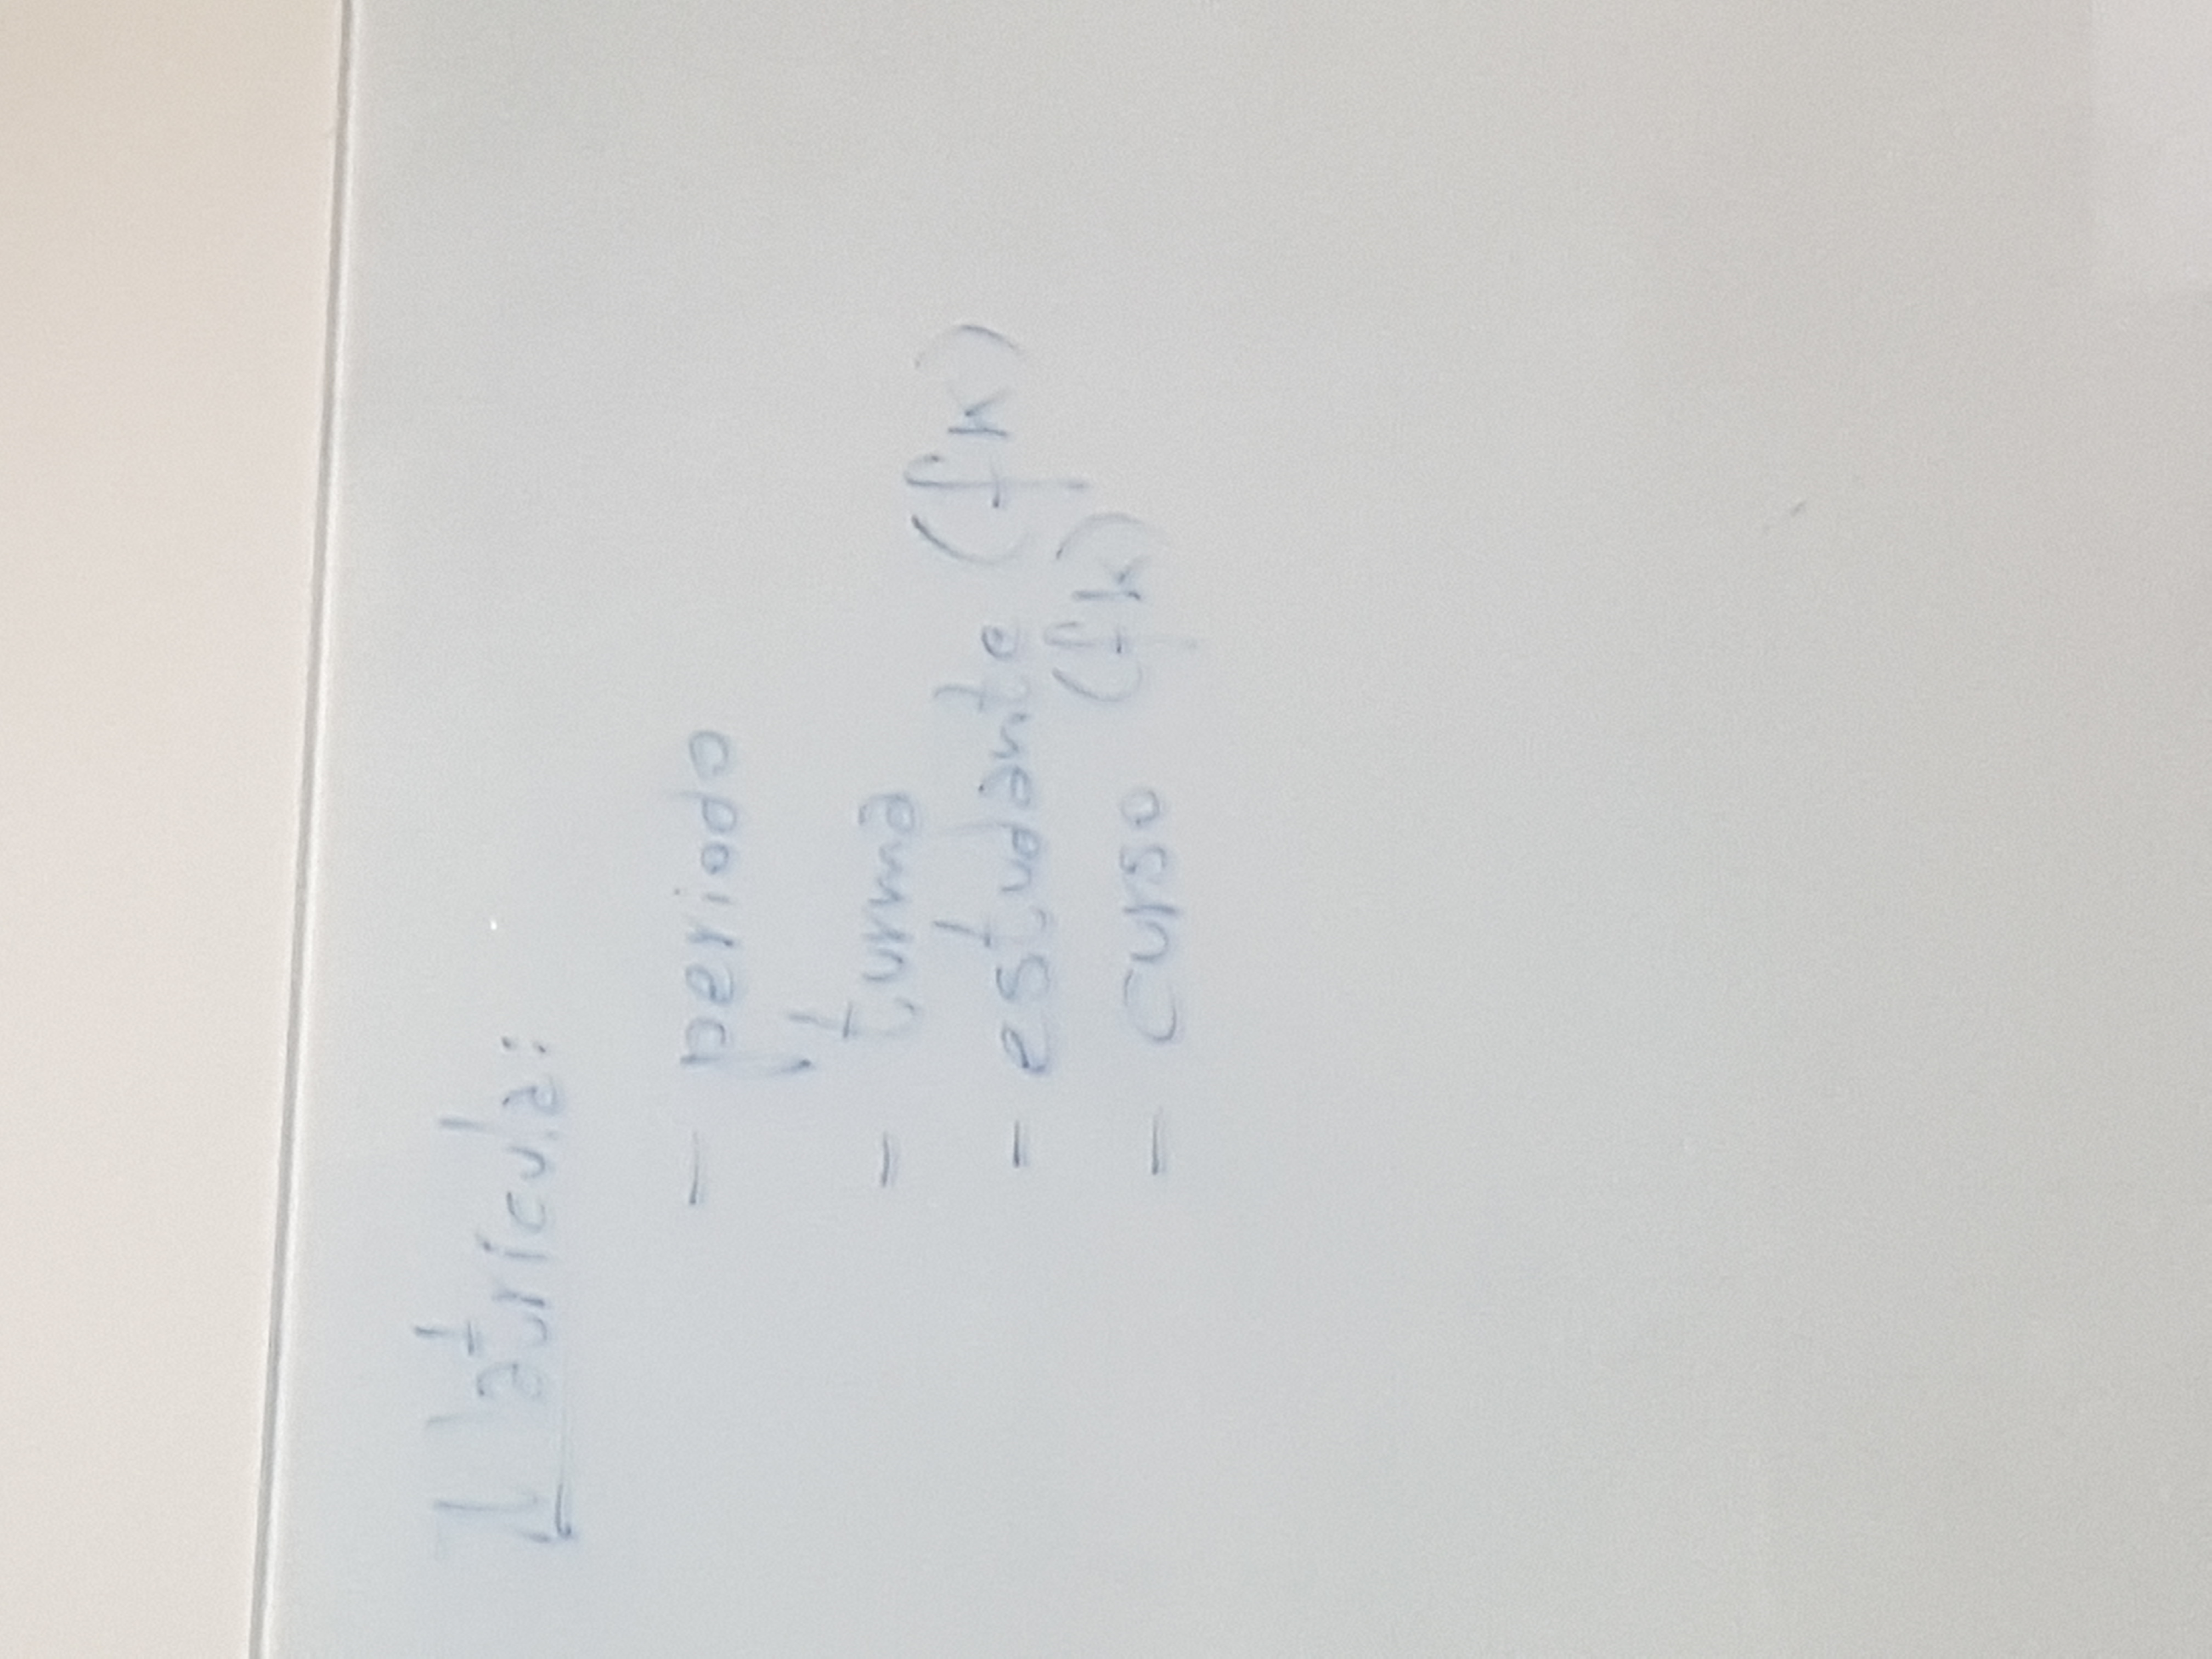 Matricula:
- periodo
- turma
- estudante (fk)
- curso (fk)